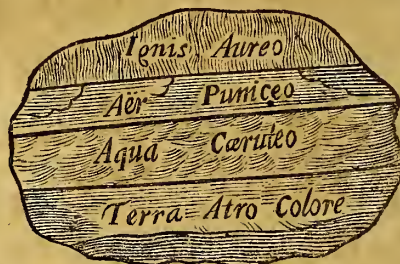 Ignis Aureo
Aër Puniceo
Aqua Cæruleo
Terra Atro Colore